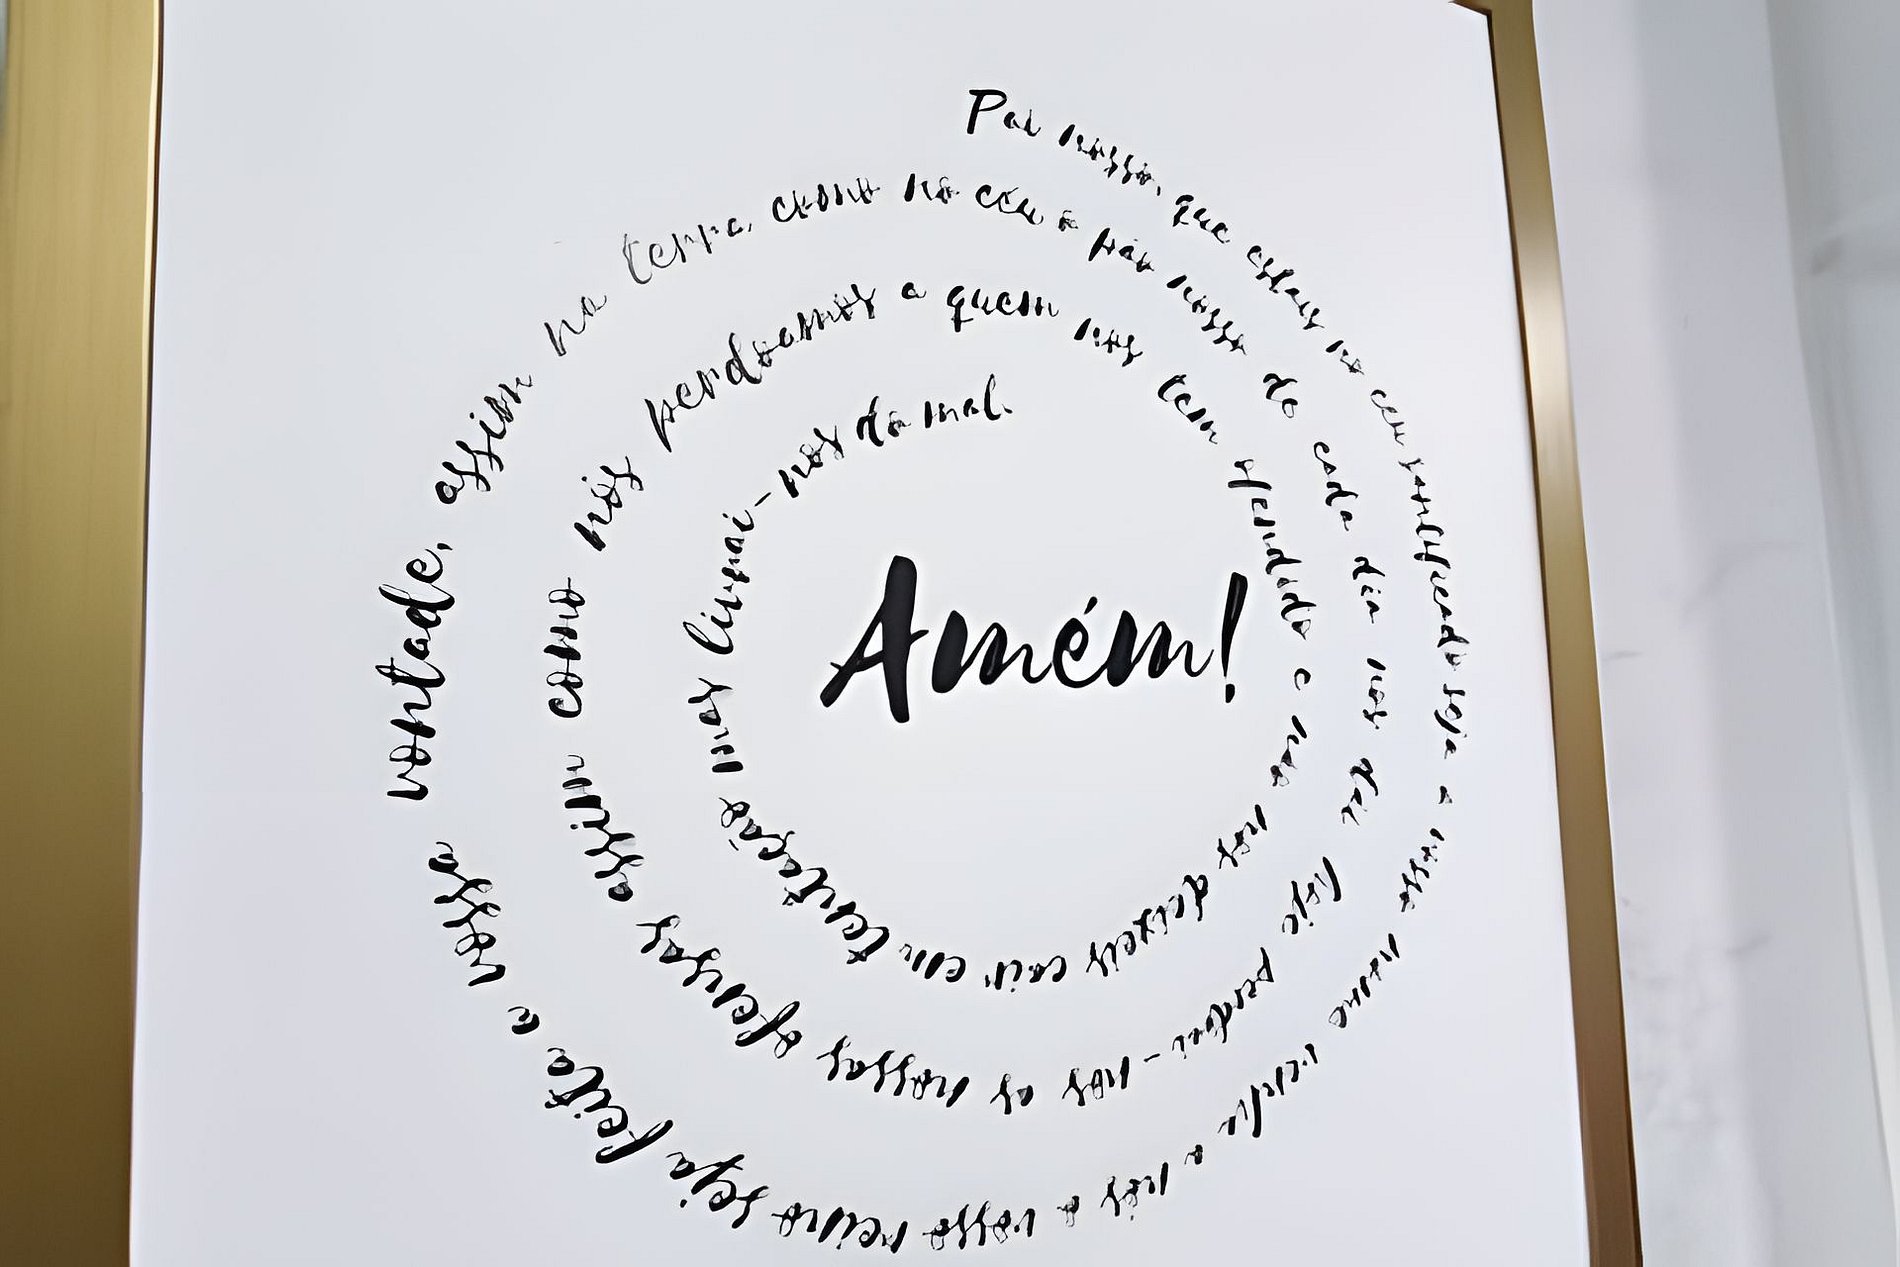 Pai nosso, que estais no céu santificado seja a vosso nome venha a nós a vosso reino seja feita a vossa vontade, assim na terra, como no céu o pão nosso de cada dia nos dai hoje perdoai-nos as nossas ofensas assim como nós perdoamos a quem nos tem ofendido e não nos deixeis cair em tentação mas livrai-nos do mal.
Amém!